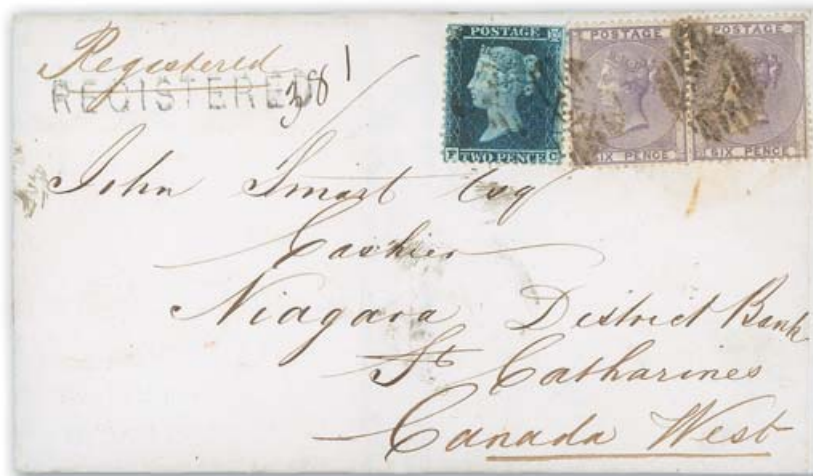 Registered
REGISTERED
38
1
POSTAGE
F TWO PENCE C
POSTAGE
SIX PENCE
POSTAGE
SIX PENCE
John Smart Esq
Cashier
Niagara District Bank
St Catharines
Canada West